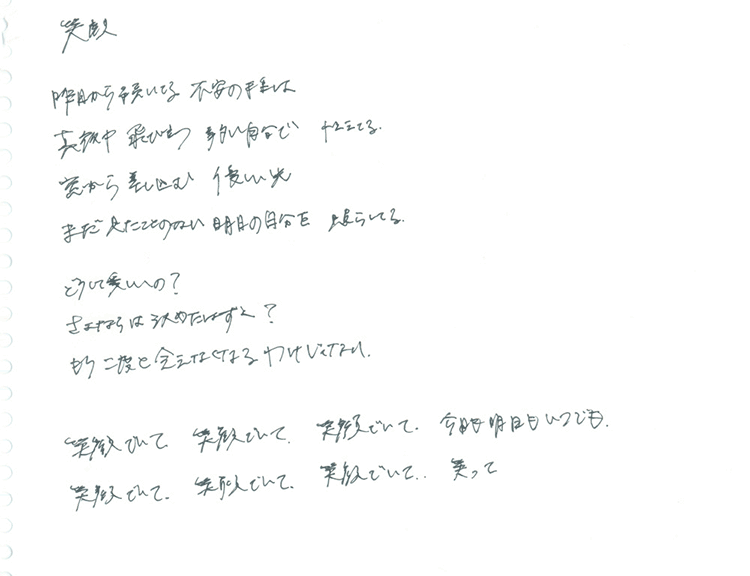 笑顔
昨日から続いてる 不安の手紙は
真夜中 飛び立つ 自分で
窓から差し込む 優しい光
まだ見たことのない 明日の自分を 照らしてる。
どうして
さよならは決めたはず ?
もう二度と会えなくなるわけじゃない。
笑顔でいて 笑顔でいて. 笑顔でいて. 今日も明日もいつでも.
笑顔でいて. 笑顔でいて. 笑顔でいて.. 笑って